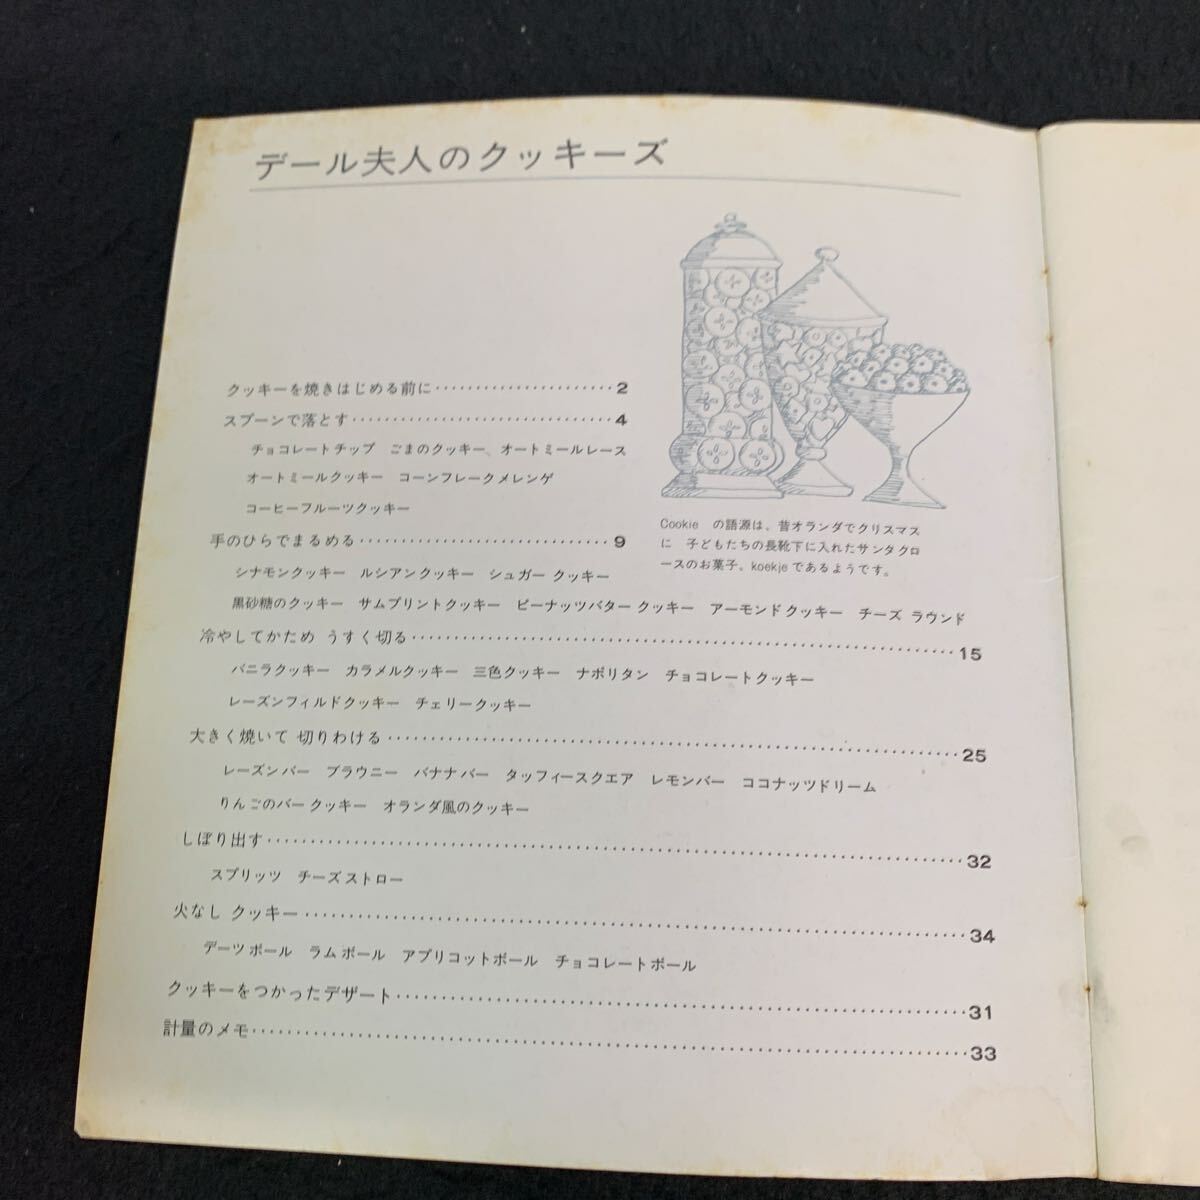 デール夫人のクッキーズ
クッキーを焼きはじめる前に・・・・・・・・・・・・・・・・・・・・・・・2
スプーンで落とす・・・・・・・・・・・・・・・・・・・・・・・・・・・・・・・・・4
チョコレートチップ ごまのクッキー、オートミールレース
オートミールクッキー コーンフレークメレンゲ
コーヒーフルーツクッキー
手のひらでまるめる・・・・・・・・・・・・・・・・・・・・・・・・・・・・・・・・9
シナモンクッキー ルシアンクッキー シュガー クッキー
黒砂糖のクッキー サムプリントクッキー ピーナッツバター クッキー アーモンドクッキー チーズ ラウンド
冷やしてかため うすく切る・・・・・・・・・・・・・・・・・・・・・・・・・・・・・・・・・・・・・・・・・・・・・・・・・・・・・・・・・・・・・・15
バニラクッキー カラメルクッキー 三色クッキー ナポリタン チョコレートクッキー
レーズンフィルドクッキー チェリークッキー
大きく焼いて 切りわける・・・・・・・・・・・・・・・・・・・・・・・・・・・・・・・・・・・・・・・・・・・・・・・・・・・・・・・・・・・・・・・・・・25
レーズンバー ブラウニー バナナバー タッフィースクエア レモンバー ココナッツドリーム
りんごのバークッキー オランダ風のクッキー
しぼり出す・・・・・・・・・・・・・・・・・・・・・・・・・・・・・・・・・・・・・・・・・・・・・・・・・・・・・・・・・・・・・・・・・・・・・・・・・・・・・・・・32
スプリッツ チーズストロー
火なし クッキー・・・・・・・・・・・・・・・・・・・・・・・・・・・・・・・・・・・・・・・・・・・・・・・・・・・・・・・・・・・・・・・・・・・・・・・・・・・・34
デーツボール ラムボール アプリコットボール チョコレートボール
クッキーをつかったデザート・・・・・・・・・・・・・・・・・・・・・・・・・・・・・・・・・・・・・・・・・・・・・・・・・・・・・・・・・・・・・・・・・・31
計量のメモ・・・・・・・・・・・・・・・・・・・・・・・・・・・・・・・・・・・・・・・・・・・・・・・・・・・・・・・・・・・・・・・・・・・・・・・・・・・・・・・・・・33
Cookie の語源は、昔オランダでクリスマス
に 子どもたちの長靴下に入れたサンタクロ
ースのお菓子、koekjeであるようです。